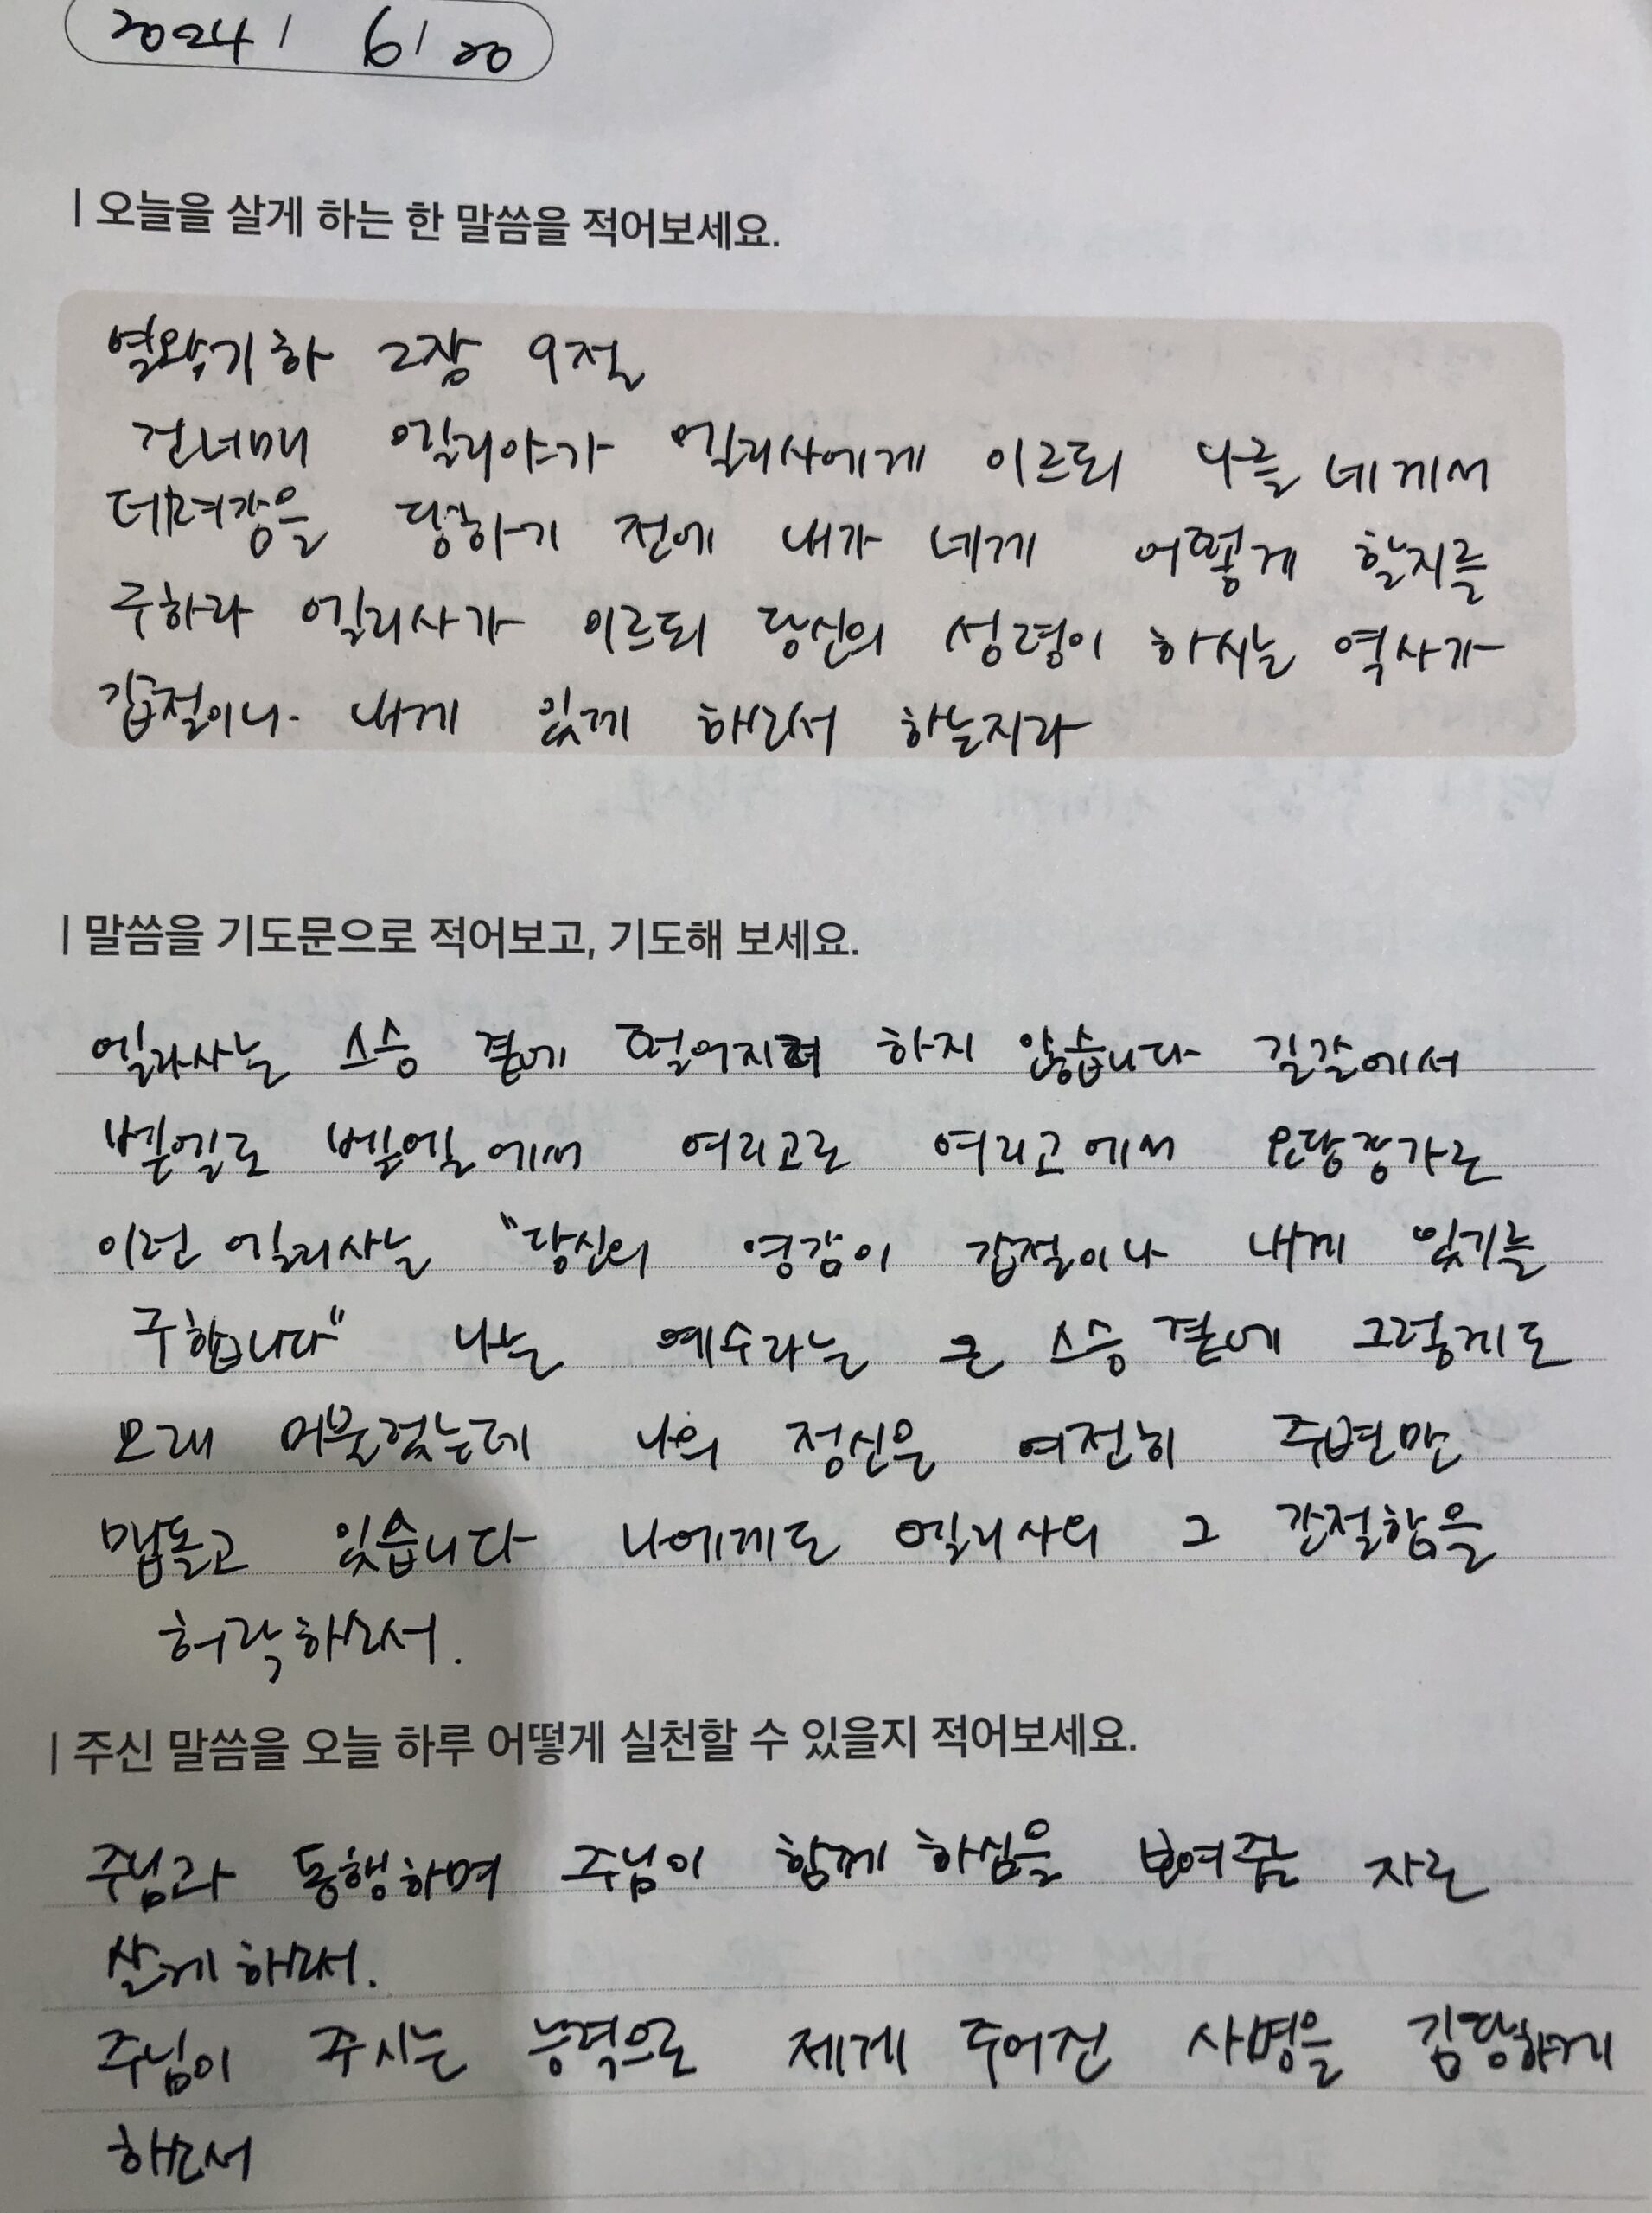 2024/ 6/ 20
| 오늘을 살게 하는 한 말씀을 적어보세요.
열왕기하 2장 9절
건너매 엘리야가 엘리사에게 이르되 나를 네게서
데려감을 당하기 전에 내가 네게 어떻게 할지를
구하라 엘리사가 이르되 당신의 성령이 하시는 역사가
갑절이나 내게 있게 하소서 하는지라
| 말씀을 기도문으로 적어보고, 기도해 보세요.
엘리사는 스승 곁에 떨어지려 하지 않습니다 길갈에서
벧엘로 벧엘에서 여리고로 여리고에서 요당강가로
이런 엘리사는 "당신의 영감이 갑절이나 내게 있기를
구합니다" 나는 예수라는 큰 스승 곁에 그렇게도
오래 머물렀는데 나의 정신은 여전히 주변만
맴돌고 있습니다 나에게도 엘리사의 그 간절함을
허락하소서.
| 주신 말씀을 오늘 하루 어떻게 실천할 수 있을지 적어보세요.
주님과 동행하며 주님이 함께 하심을 보여줌는 자로
살게 하소서.
주님이 주시는 능력으로 제게 주어진 사명을 감당하게
하소서